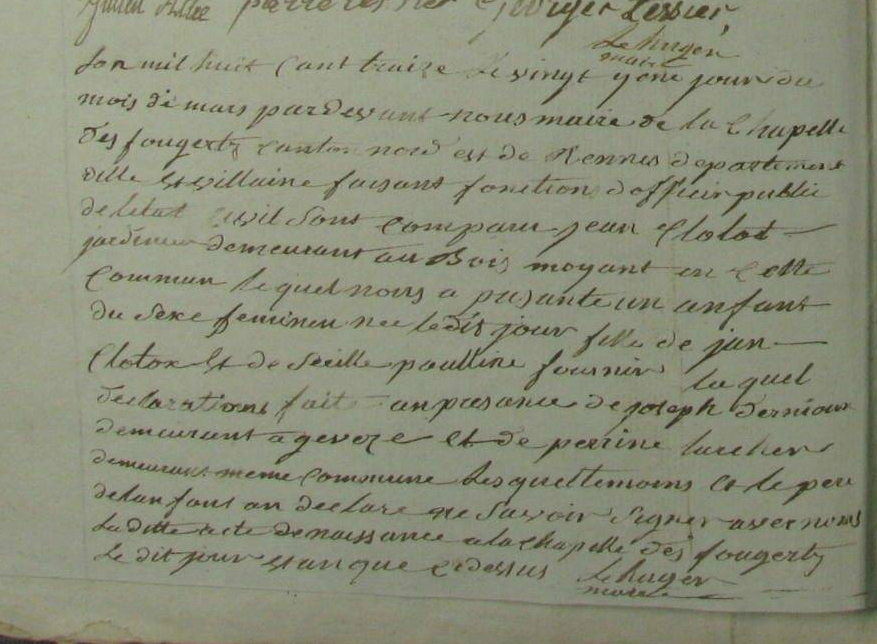 Georges Tessier
Le huger
maire
Lan mil huit Cant traize Le vingt yone jour du
mois de mars par devant nous maire de la Chapelle
des fougerty canton nord est de Rennes departement
dille Et villaine faisant fonction dofficier public
de letat civil Sont comparu jean Clolot
jardinier demeurant au Bois moyant en Cette
Commun lequel nous a pasante un anfant
du Sexe feminin nee ledit jour fille de jan
Clotox Et de Seille paulline fournir laquel
declarations fait an presance de joseph derniaux
demeurant a geveze Et de perrine larcher
demeurant meme Commune Lesquel temoins Et le pere
delanfant an declare ne Savoir Signer avec nous
La ditte acte de naissance a la Chapelle des fougerty
Le dit jour Et an que cidessus Le huger
maire